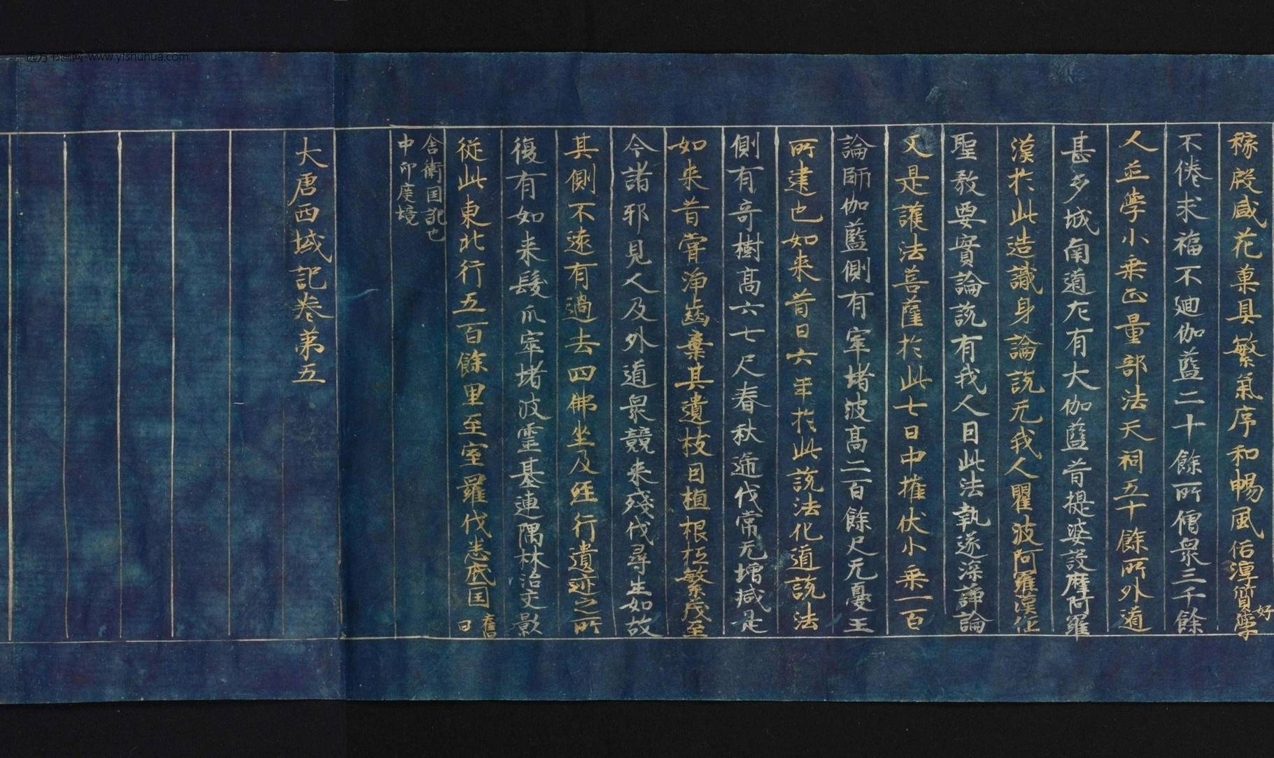 稼殷盛花菓具繁氣序和暢風俗淳質好學
不倦求福不廻伽藍二十餘所僧衆三千餘
人並學小乘正量部法天祠五十餘所外道
甚多城南道左有大伽藍昔提婆設摩阿羅
漢於此造識身論說无我人瞿波阿羅漢作
聖教要實論說有我人因此法執遂深諍論
又是護法菩薩於此七日中摧伏小乘一百
論師伽藍側有窣堵波高二百餘尺无憂王
所建也如來昔日六年於此說法化道說法
側有奇樹高六七尺春秋遞代常无增減是
如來昔甞淨齒棄其遺枝因植根柢繁茂至
今諸邪見人及外道衆競來殘伐尋生如故
其側不遠有過去四佛坐及經行遺迹之所
復有如來髮爪窣堵波靈基連隅林沼交影
從此東北行五百餘里至室羅伐悉底国舊曰
舍衛国訛也
中印度境
大唐西域記卷第五
www.yishuhua.com